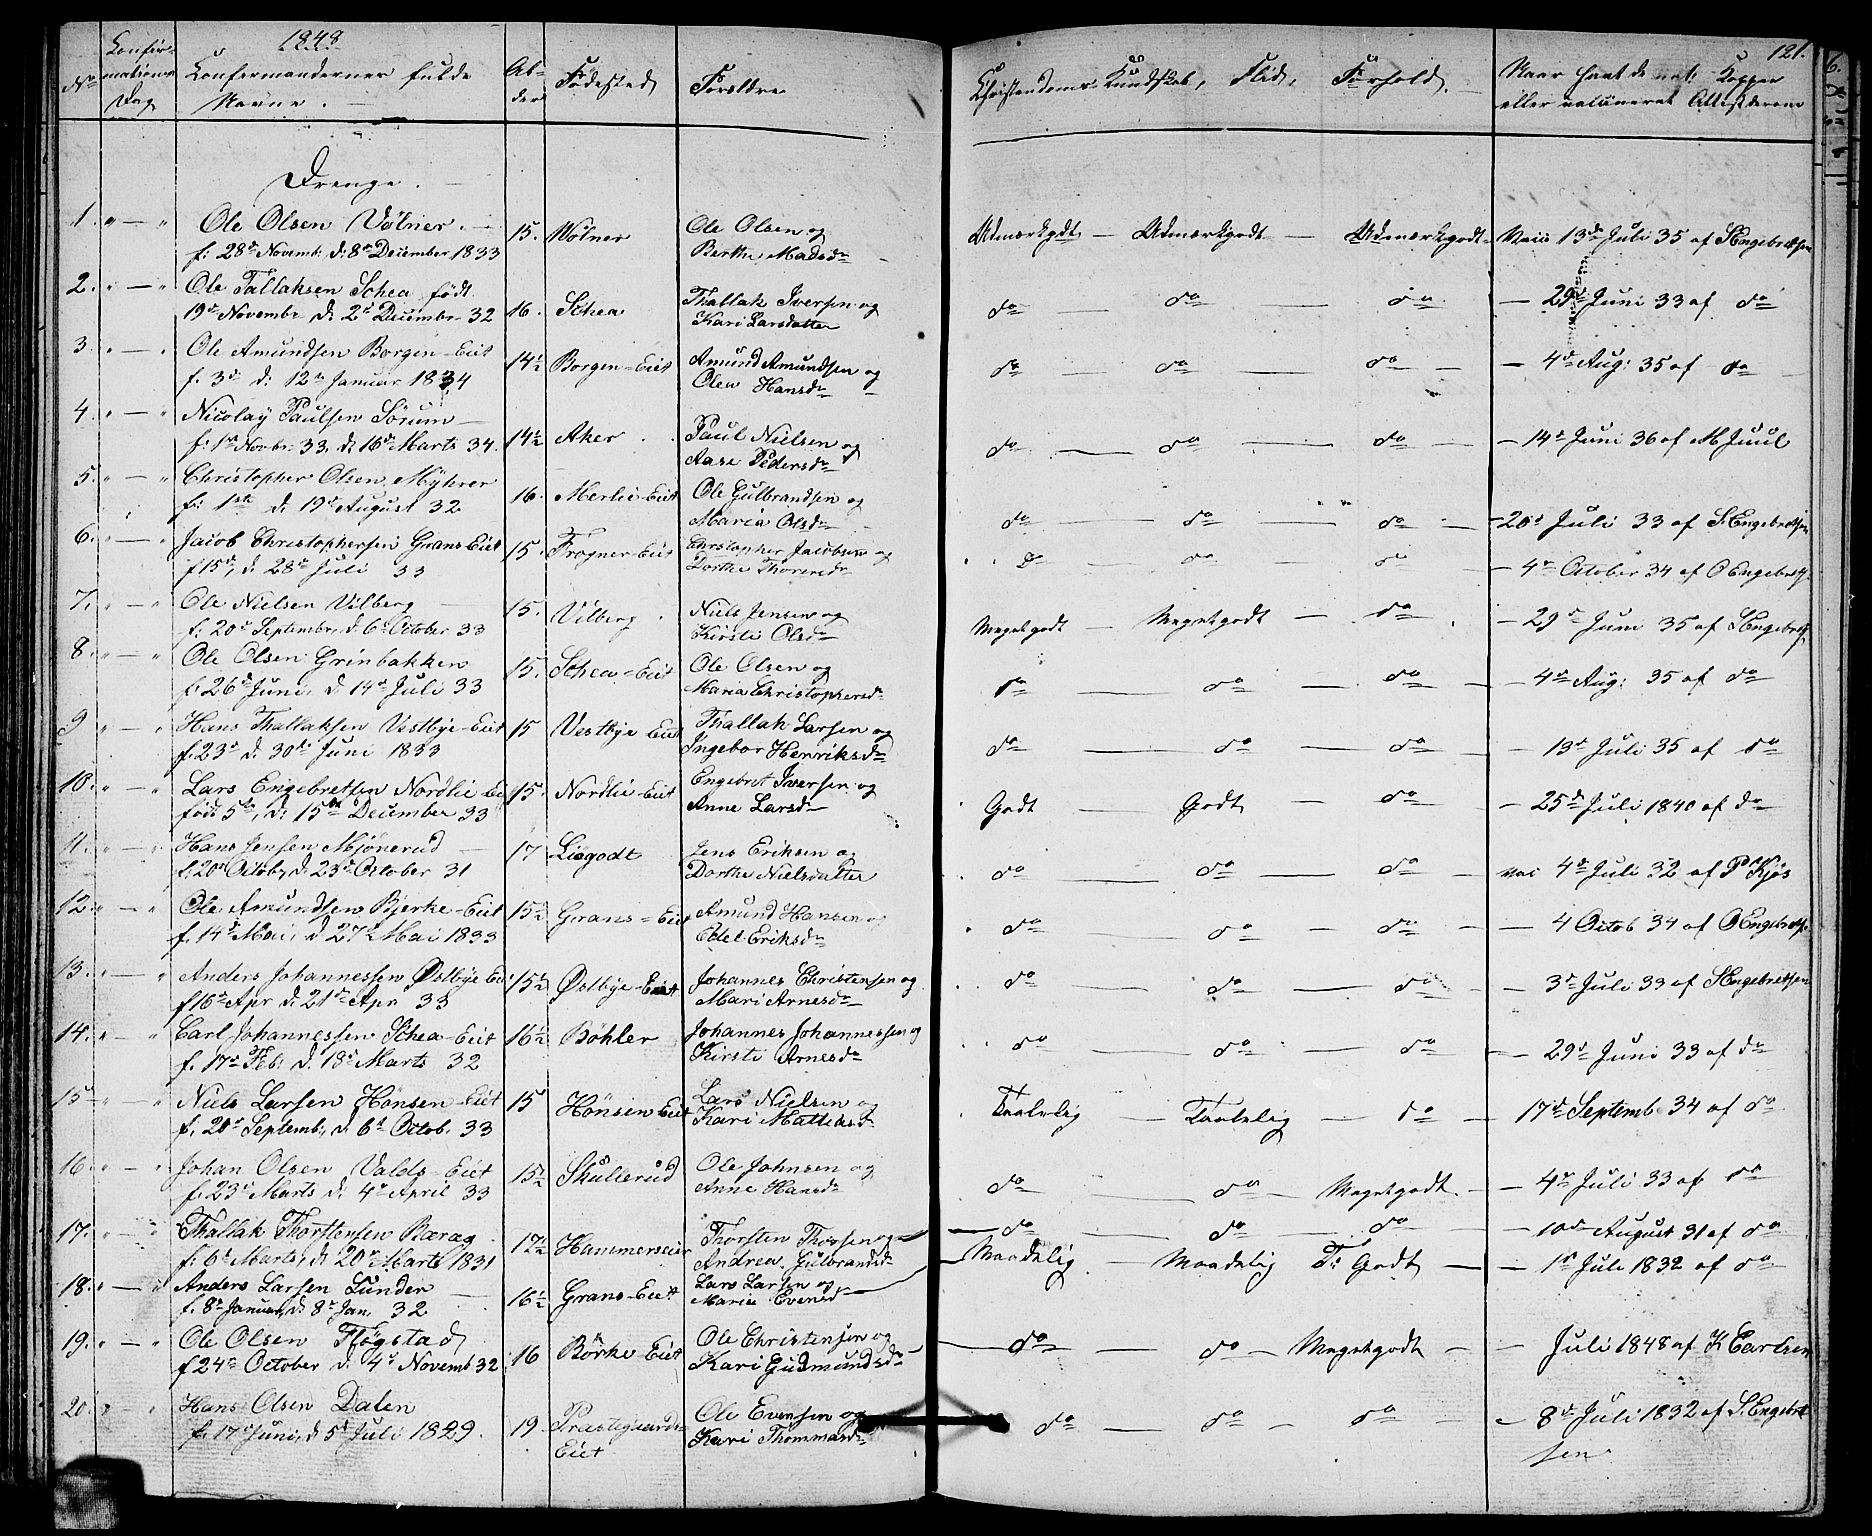 1848
121.
No
Confir-
mations
Dag
Confirmandernes fulde
Navne.
Al-
der
Födested
Forældre
Christendoms-Kundskab, Flid, Forhold.
Naar havt de nat: Kopper
eller vaccineret Attesterene
Drenge.
1. " — " Ole Olsen Völner. 15. Wölner Ole Olsen og Udmærkgdt — Udmærkgodt — Udmærkgodt Vacc 13de Juli 35 af S Engebretsen
f: 28de Novemb. d: 8de December 1833 Berthe Madsdr
2. " — " Ole Tallaksen Schea född 16. Schea Thallak Iversen og do — do — do — 29de Juni 33 af do
19de Novembr. d: 2den Decembr 32 Kari Larsdatter
3. " — " Ole Amundsen Borgen-Eiet 14½ Borgen-Eiet Amund Amundsen og do — do — do — 4de Aug: 35 af do
f. 3de d: 12te Januar 1834 Olea Hansdr
4. " — " Nicolay Paulsen Sörum 14½ Aker Paul Nielsen og do — do — do — 14de Juni 36 af M Juul
f: 1ste Novbr. 33, d: 16de Marts 34. Aase Pedersdr
5. " — " Christopher Olsen Myhrer 16. Merlie-Eiet Ole Gulbrandsen og do — do — do — 20de Juli 33 af S. Engebretsen
f: 1ste d: 19de August 32 Maria Olsdr
6. " — " Jacob Christophersen Grans-Eiet 15. Frogner-Eiet Christopher Jacobsen og do do do — 4de October 34 af O Engebrets.
f 15de, d. 28de Juli 33 Dorthe Thoresdr
7. " — " Ole Nielsen Vilberg 15. Vilberg Niels Jensen og Megetgodt — Megetgodt — do — 29de Juni 35 af S Engebrets
f: 20de Septembr. d. 6te October 33 Kirsti Olsdr
8. " — " Ole Olsen Grinbakken 15. Schea-Eiet Ole Olsen og do — do — do — 4de Aug: 35 af do
f. 26de Juni, d. 14de Juli 33 Maria Christophersdr
9 " — " Hans Thallaksen Vestbye-Eiet 15 Vestbye Eiet Thallak Larsen og do — do — do — 13de Juli 35 af do
f. 23de d. 30de Juni 1833 Ingebor Henriksdr
10. " — " Lars Engebretsen Nordlie Ei 15. Nordlie-Eiet Engebret Iversen og Godt — Godt — do — 25de Juli 1840 af do
föd 5te, d: 15de December 33 Anne Larsdr
11. " — " Hans Jensen Mjönerud 17 Liegodt Jens Eriksen og do — do — do — vac 4de Juli 32 af P Kjös
f. 20de Octob, d. 23de October 31 Dorthe Nielsdatter
12. " — " Ole Amundsen Bjerke-Eiet 15½ Grans-Eiet Amund Hansen og do — do — do — 4 Octob 34 af O Engebrets.
f. 14de Mai, d 27de Mai 1833 Edel Eriksdr
13. " — " Anders Johannessen Östbye-Ei 15½ Östbye-Eiet Johannes Christensen og do — do — do — 3de Juli 33 af S Engebretsen
f 16de Apr d. 21de Apr 33 Mari Arnesdr
14. " — " Carl Johannessen Schea-Eiet 16½ Böhler Johannes Johannessen og do — do — do — 29de Juni 33 af do
f. 17de Feb. d. 18de Marts 32 Kirsti Arnesdr
15 " — " Niels Larsen Hönsen-Eiet 15 Hönsen Eiet Lars Nielsen og Taalelig — Taalelig — do — 17de Septemb 34 af do
f. 20de Septemb., d. 6te Octob. 33 Kari Mathiasdr
16. " — " Johan Olsen Valds-Eiet 15½ Skullerud Ole Johnsen og do — do — Megetgodt. — 4de Juli 33 af do
f. 23de Marts d: 4de April 33 Anne Hansdr
17. " — " Thallak Thorstensen Bærag 17½ Hammerseier Thorsten Thorsen og — do — do — do — 10de August 31 af do
f: 6te Marts, d. 20de Marts 1831 Andrea Gulbrandsdr
18. " — " Anders Larsen Lunder 16½ Grans-Eiet Lars Larsen og Maadelig — Maadelig T: Godt — 1ste Juli 1832 af do
f. 8de Januar, d: 8de Jan. 32 Maria Evensdr
19. " — " Ole Olsen Flögstad 16 Börke Eiet Ole Christensen og do — do — Megetgodt — Juli 1848 af K Carlsen
f 24de October d. 4de Novemb 32 Kari Gudmundsdr
20. " — " Hans Olsen Dalen 19 Præstegaards- Ole Evensen og do — do — do — 8de Juli 1832 af S. Engebret
f. 17de Juni, d 5te Juli 1829. Eiet Kari Thommasdr sen